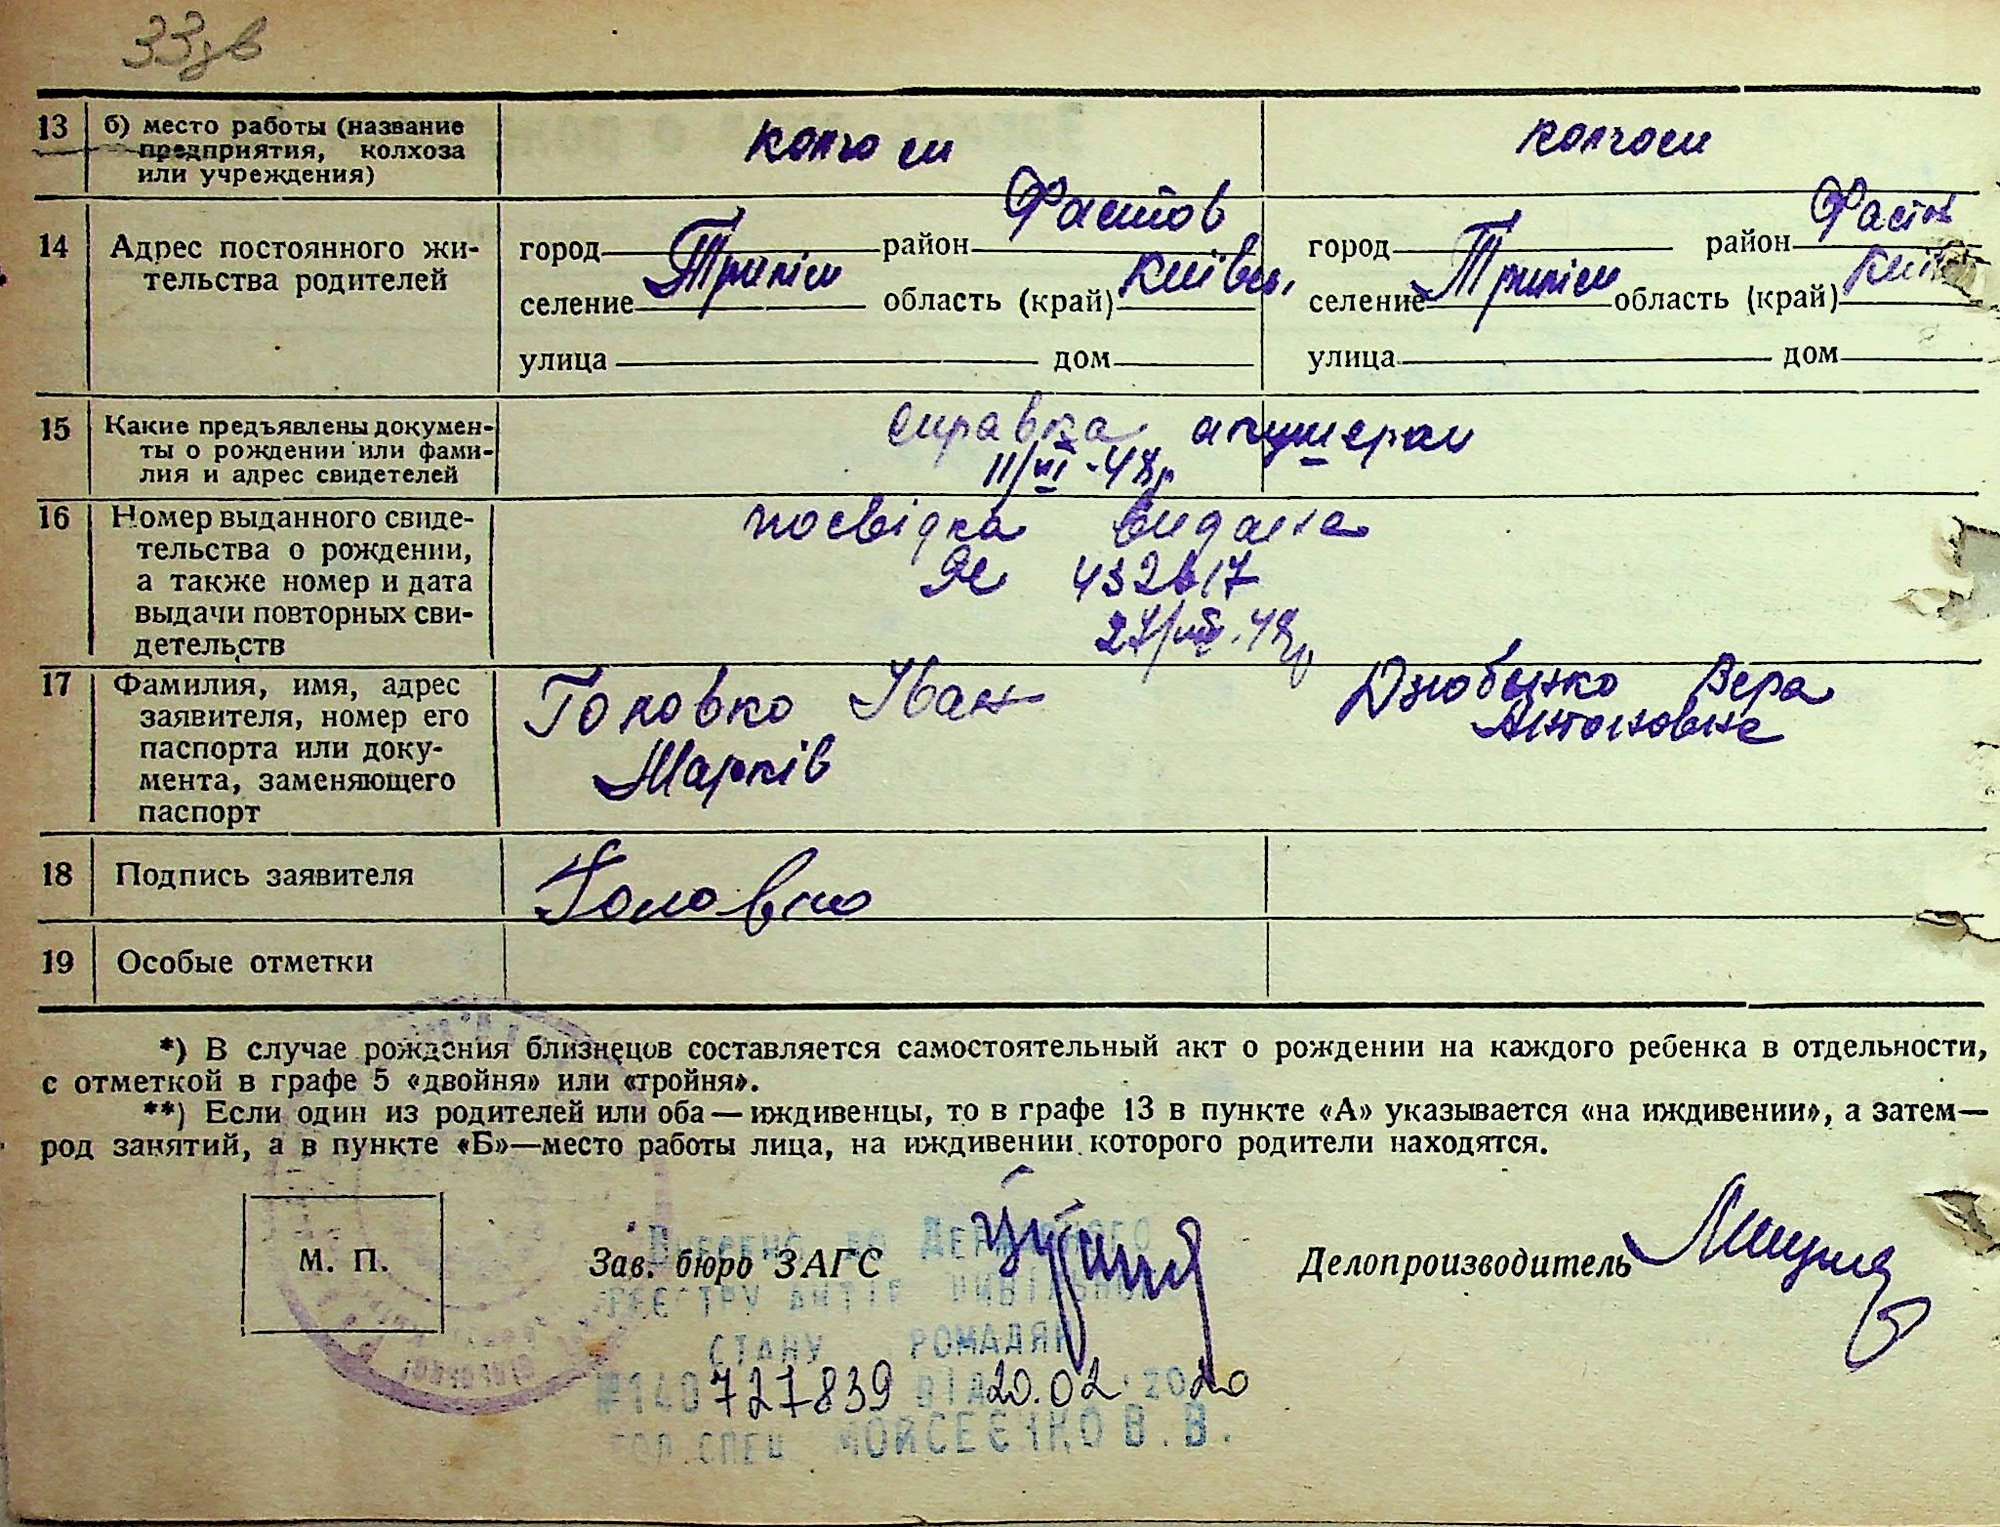 33зв
13 б) место работы (название
предприятия, колхоза
или учреждения)
колгосп колгосп
14 Адрес постоянного жи-
тельства родителей
город район Фастов город район Фастов
селение Триліси область (край) Київськ. селение Триліси область (край) Київ
улица дом улица дом
15 Какие предъявлены докумен-
ты о рождении или фами-
лия и адрес свидетелей
справка акушерки
16 Номер выданного свиде-
тельства о рождении,
а также номер и дата
выдачи повторных сви-
детельств
посвідка видана
17 Фамилия, имя, адрес
заявителя, номер его
паспорта или доку-
мента, заменяющего
паспорт
Головко Іван
Марків
Дзюбенко Вера
Антоновна
18 Подпись заявителя
Головко
19 Особые отметки
*) В случае рождения близнецов составляется самостоятельный акт о рождении на каждого ребенка в отдельности,
с отметкой в графе 5 «двойня» или «тройня».
**) Если один из родителей или оба — иждивенцы, то в графе 13 в пункте «А» указывается «на иждивении», а затем —
род занятий, а в пункте «Б»—место работы лица, на иждивении которого родители находятся.
М. П. Зав. бюро ЗАГС Делопроизводитель
Внесено до Державного
реєстру актів цивільного
стану громадян
№140727839 від 20.02.2020
Гол.спец. Мойсеєнко В.В.